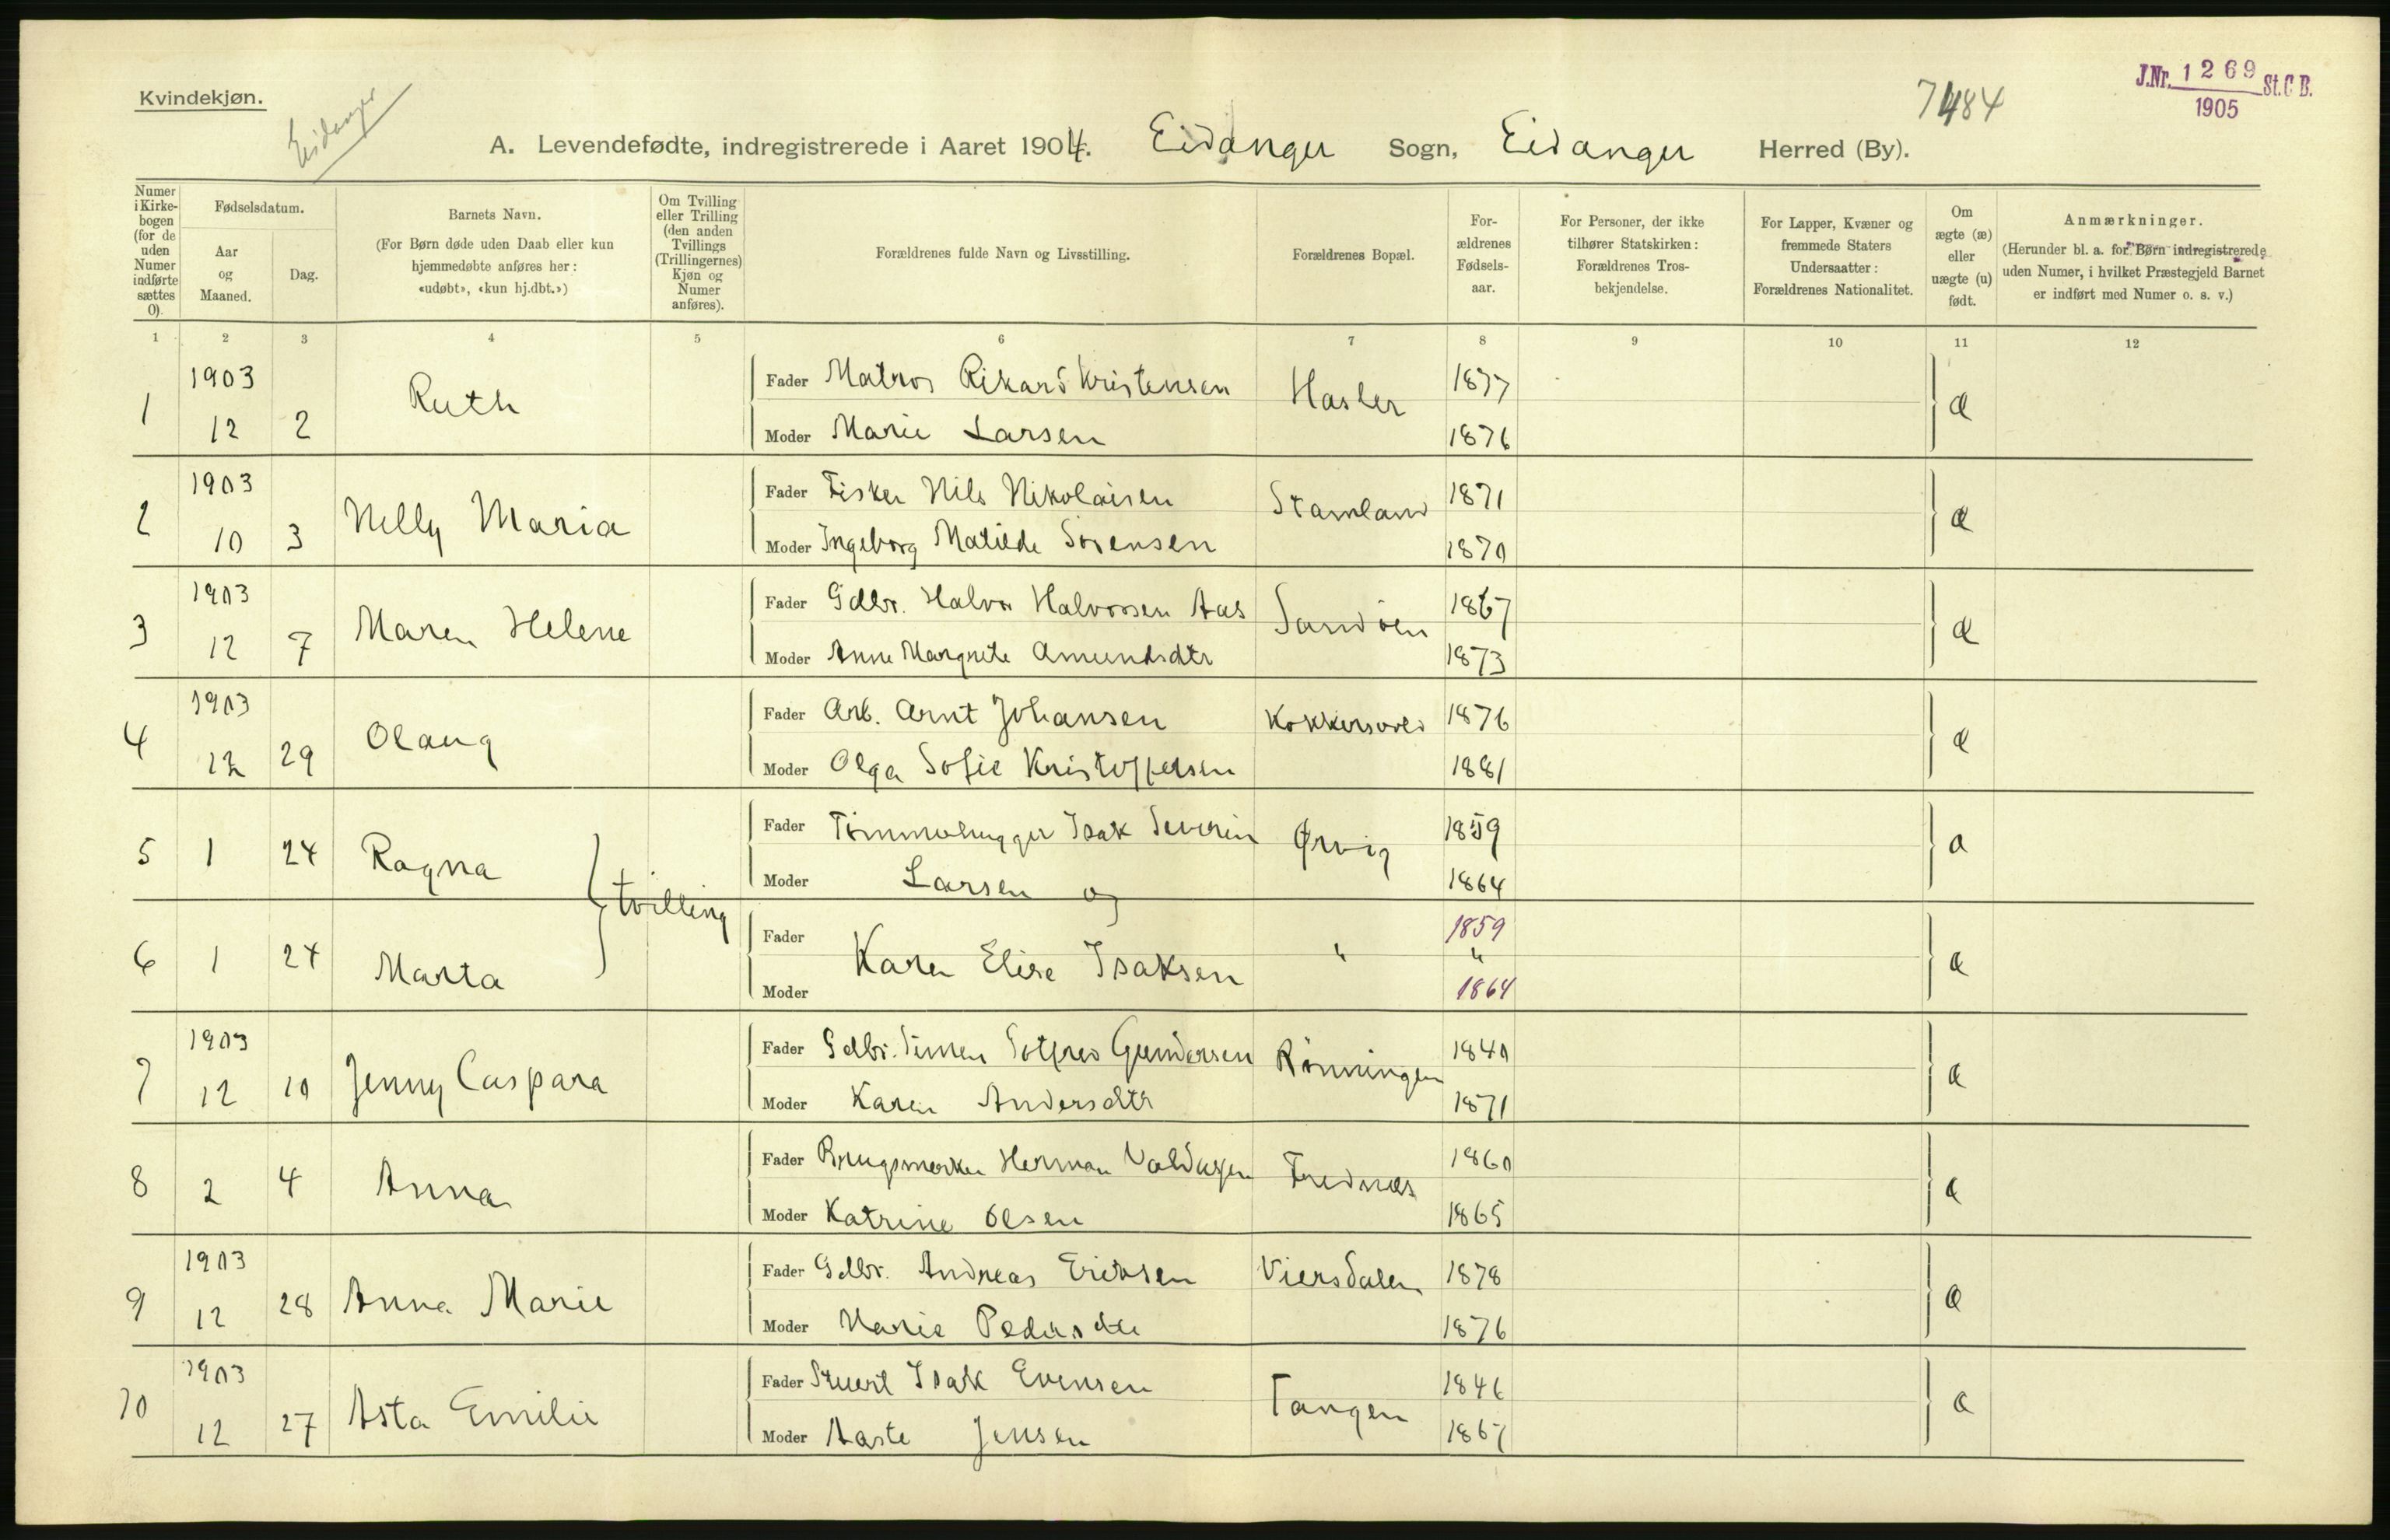 Kvindekjøn.
Eidanger
7484
J.Nr. 1269 St.C B.
1905
A. Levendefødte, indregistrerede i Aaret 1904. Eidanger Sogn, Eidanger Herred (By).
Numer i Kirkebogen (for de uden Numer indførte sættes 0).
Fødselsdatum.
Aar og Maaned.
Dag.
Barnets Navn.
(For Børn døde uden Daab eller kun hjemmedøbte anføres her: «udøbt», «kun hj.dbt.»)
Om Tvilling eller Trilling (den anden Tvillings (Trillingernes) Kjøn og Numer anføres).
Forældrenes fulde Navn og Livsstilling.
Forældrenes Bopæl.
For-ældrenes Fødsels-aar.
For Personer, der ikke tilhører Statskirken: Forældrenes Tros-bekjendelse.
For Lapper, Kvæner og fremmede Staters Undersaatter: Forældrenes Nationalitet.
Om ægte (æ) eller uægte (u) født.
Anmærkninger.
(Herunder bl. a. for Børn indregistrerede uden Numer, i hvilket Præstegjeld Barnet er indført med Numer o. s. v.)
1 2 3 4 5 6 7 8 9 10 11 12
1 1903 12 2 Ruth Fader Matros Rikard Kristensen Hasler 1877 æ
Moder Marie Larsen 1876
2 1903 10 3 Nelly Maria Fader Fisker Nils Nikolaisen Stamland 1871 æ
Moder Ingeborg Matilde Sørensen 1870
3 1903 12 7 Maren Helene Fader Gdbr. Halvor Halvorsen Aas Sandøen 1867 æ
Moder Anne Margrete Amundsdtr 1873
4 1903 12 29 Olaug Fader Arb. Arnt Johansen Kokkersvold 1876 æ
Moder Olga Sofie Kristoffersen 1881
5 1 24 Ragna } tvilling Fader Tømmerhugger Isak Severin Ørvig 1859 æ
Moder Larsen og 1864
6 1 24 Marta Fader Karen Elise Isaksen " 1859 " æ
Moder 1864
7 1903 12 10 Jenny Caspara Fader Gdbr. Simen Gotfred Gundersen Rønningen 1840 æ
Moder Karen Andersdtr 1871
8 2 4 Anna Fader Herman Frednes 1860 æ
Moder Katrine Olsen 1865
9 1903 12 28 Anna Marie Fader Gdbr. Andreas Eriksen Viersdalen 1878 æ
Moder Marie Pedersdtr 1876
10 1903 12 27 Asta Emilie Fader Stuert Isak Evensen Tangen 1846 æ
Moder Aaste Jensen 1867